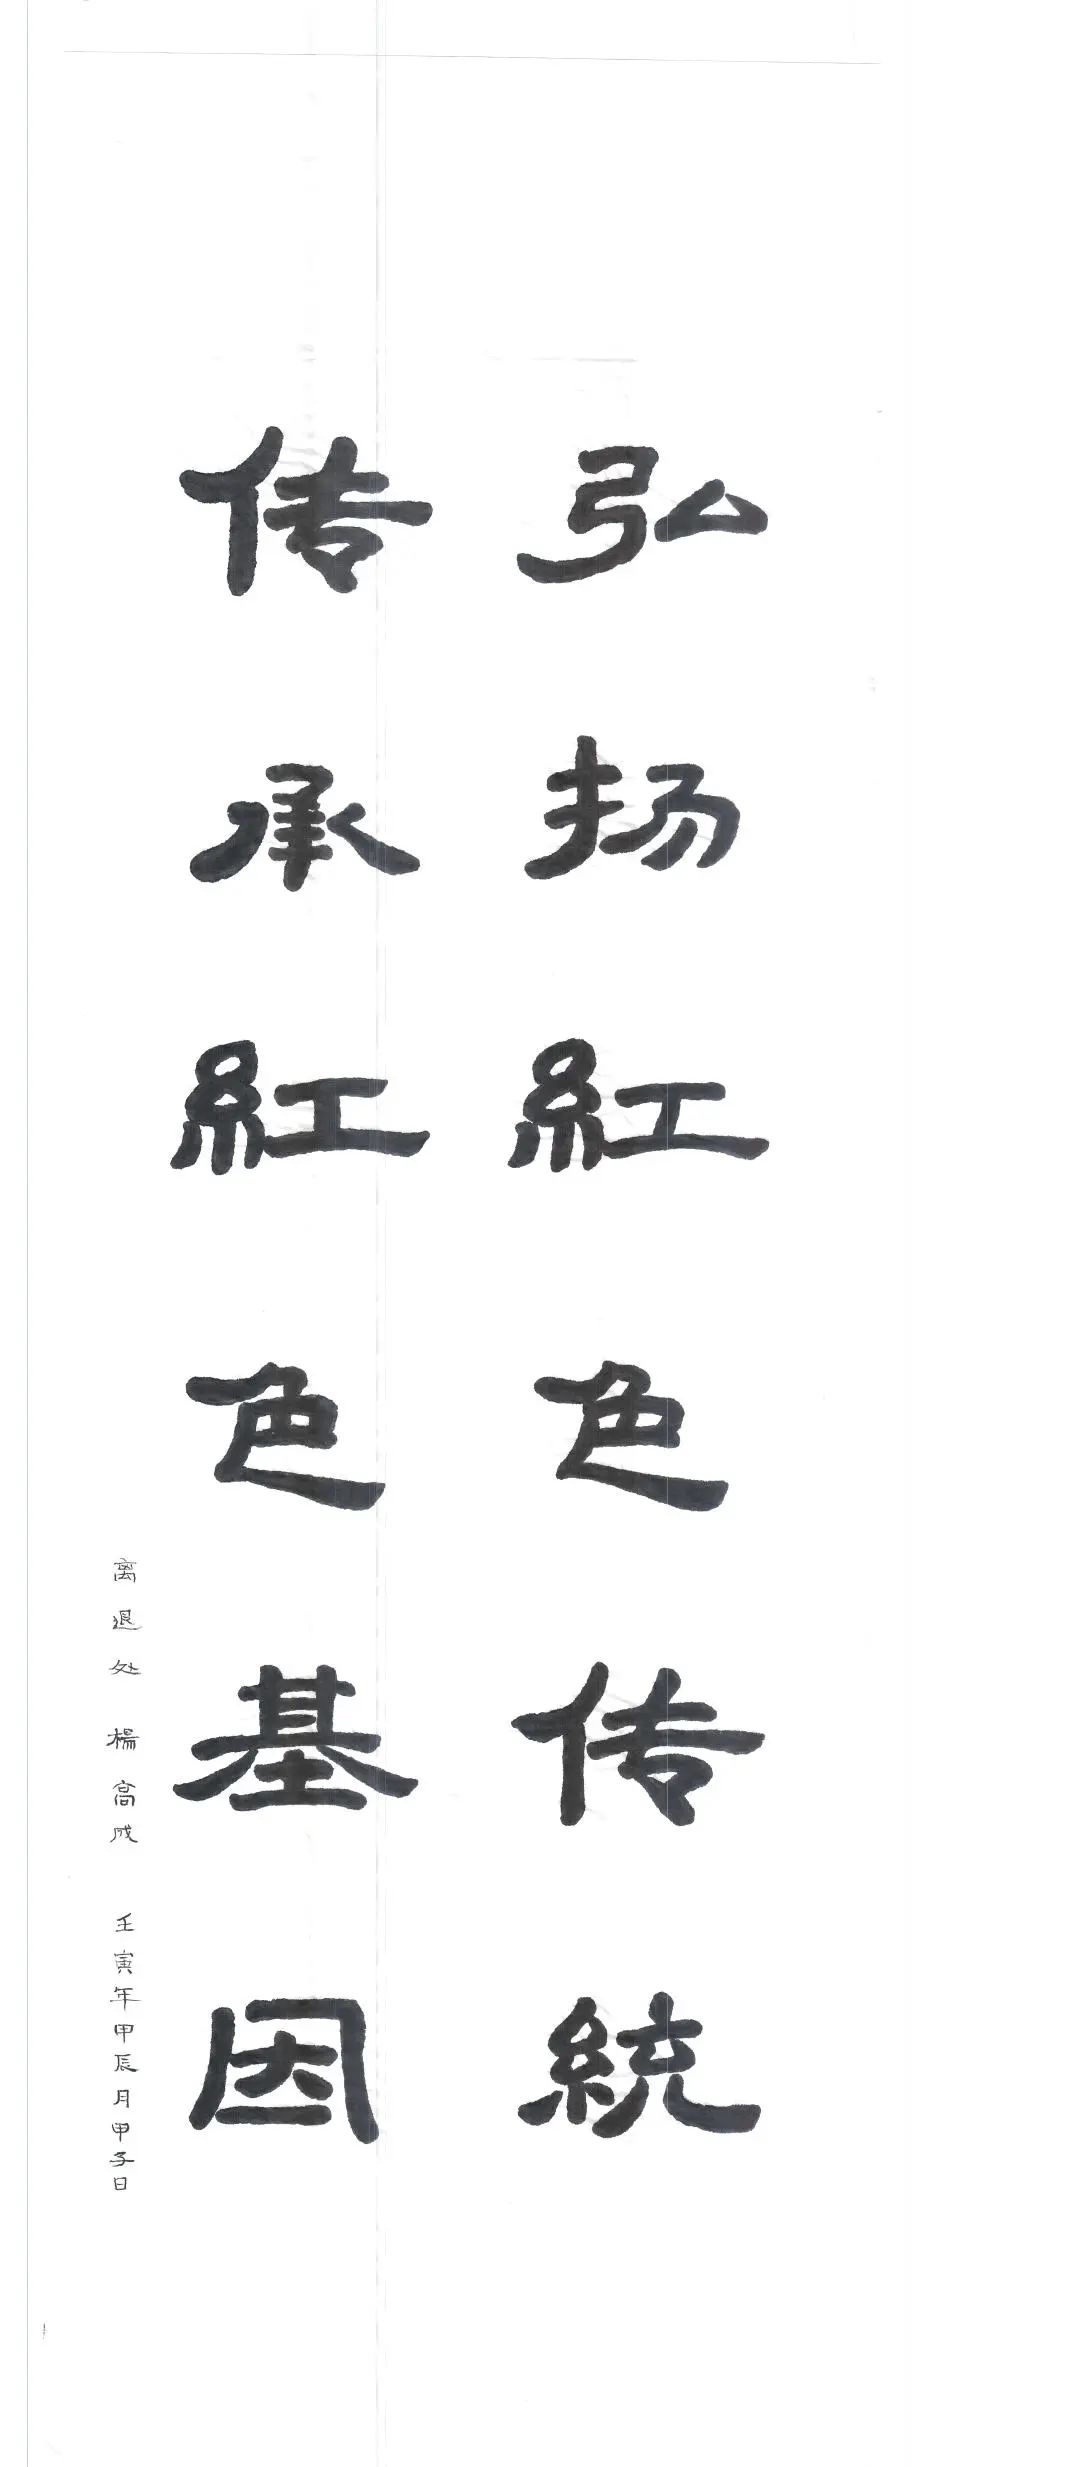 弘扬紅色传統
传承紅色基因
离退处 楊高成 壬寅年甲辰月甲子日